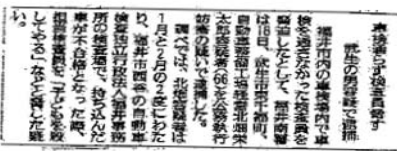 車検通らず検査員脅す
武生の男容疑で逮捕
福井市内の車検場内で車
検を通さなかった検査員を
脅迫したとして、福井南署
は18日、武生市
自動車整備工場経営
(66)を公務執行
妨害の疑いで逮捕した。
調べでは、北畑容疑者は
1月と2月の2度にわた
り、福井市西谷の自動車
検査独立行政法人福井事務
所の検査場で、持ち込んだ
車が不合格となった際、
担当検査員を
してやる」などと脅した疑
い。